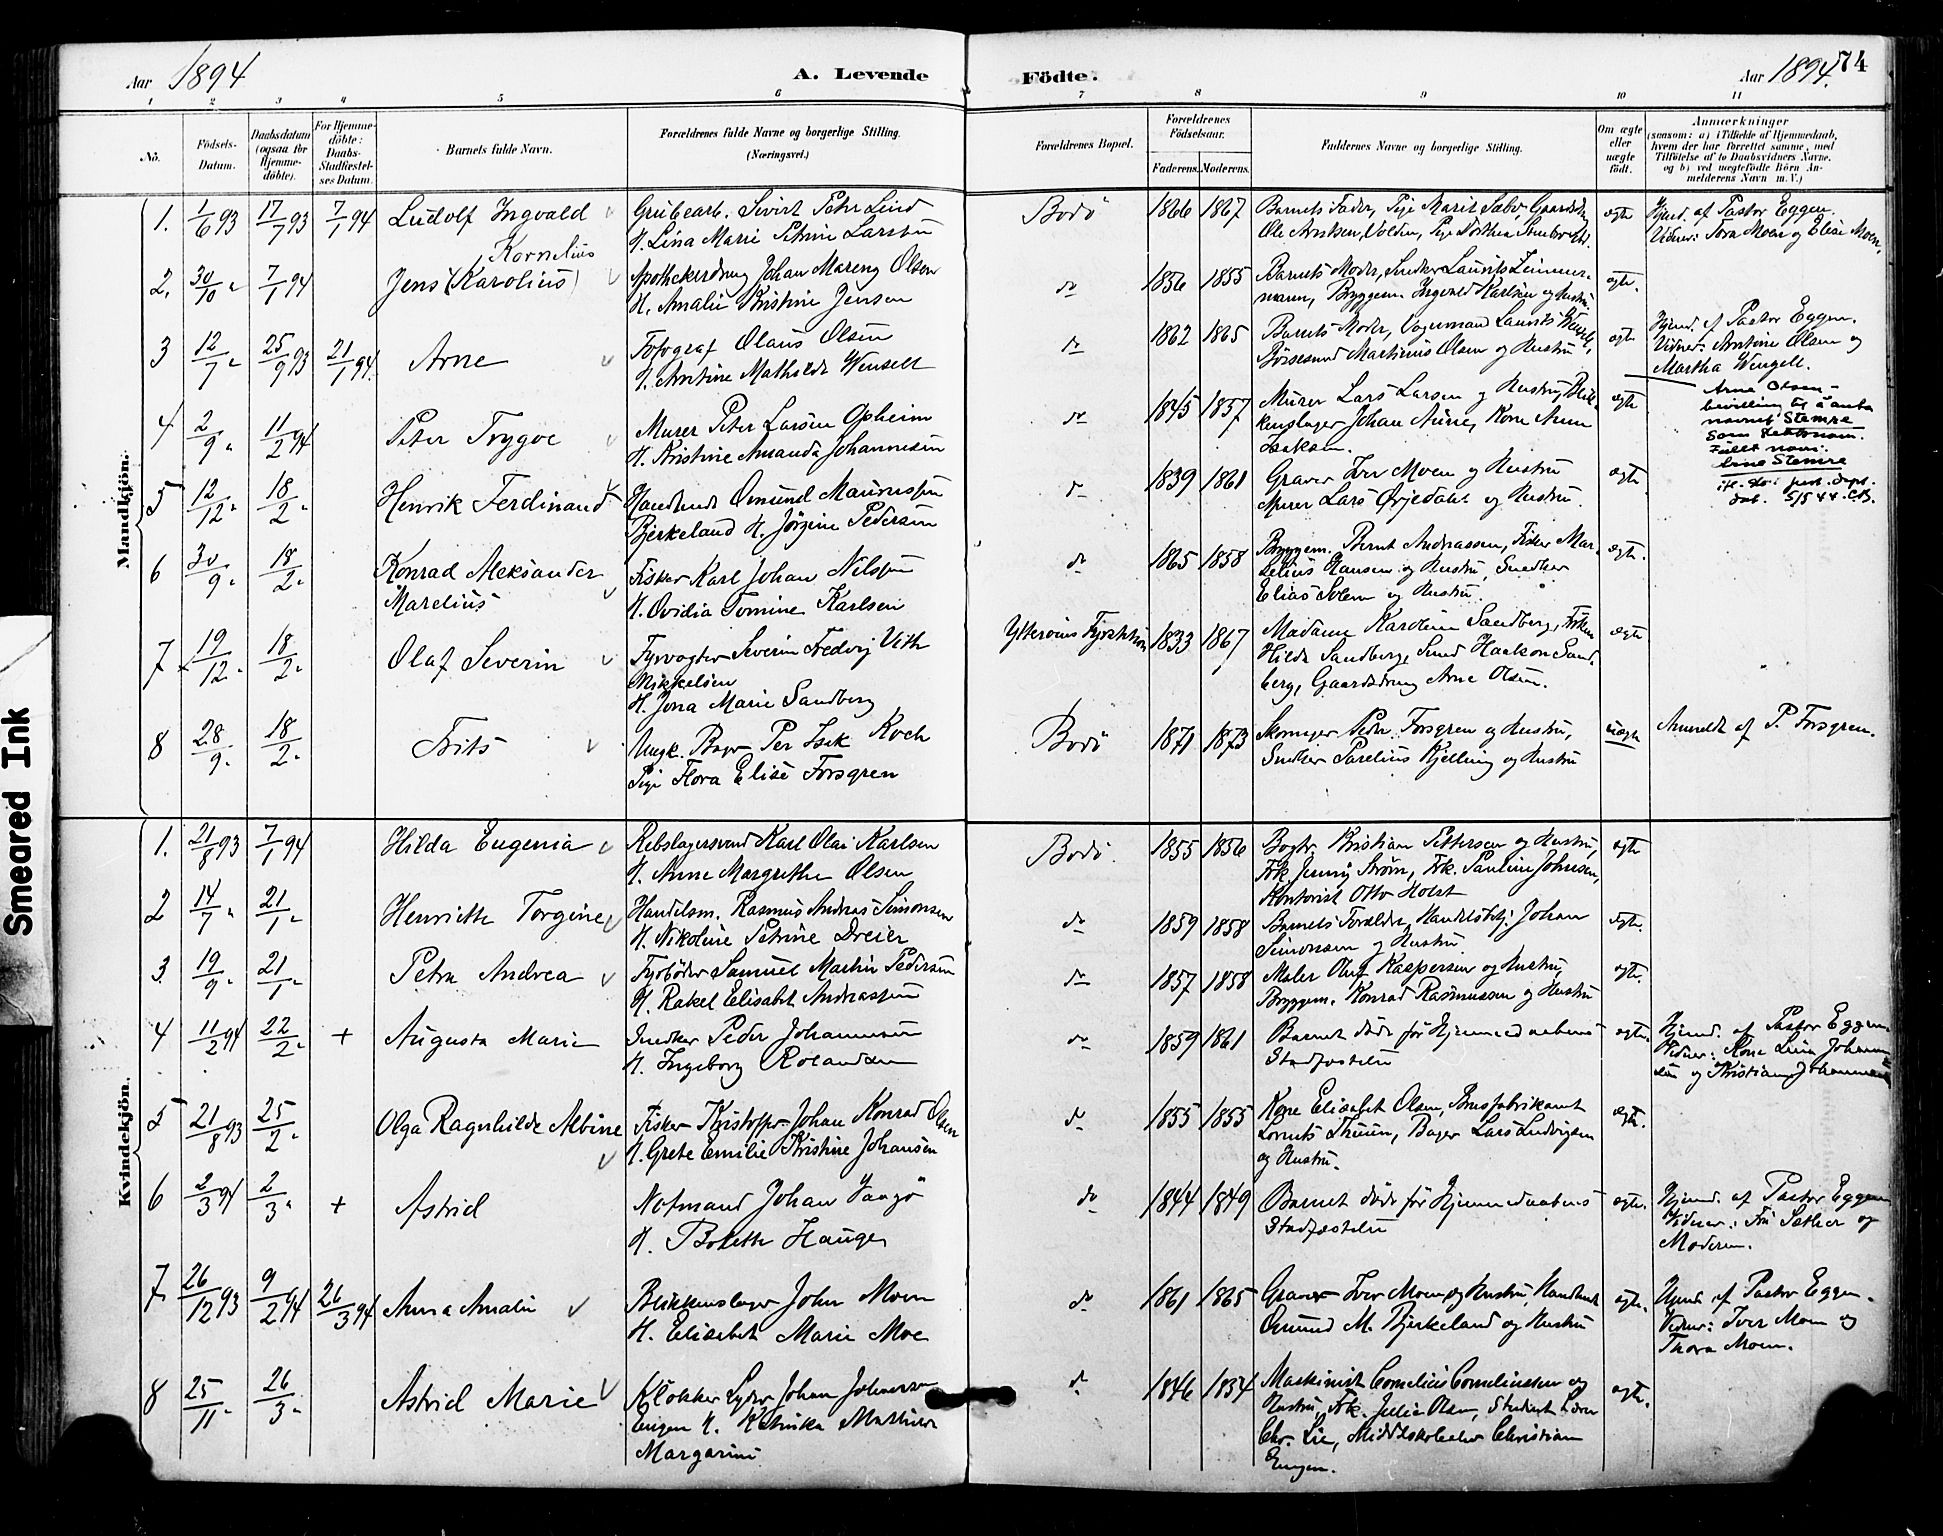 Aar 1894
A. Levende
Födte.
Aar 1894.
74
1 2 3 4 5 6 7 8 9 10 11
No.
Födsels-
Datum.
Daabsdatum
(ogsaa for
Hjemme-
döbte).
For Hjemme-
döbte:
Daabs-
Stadfæstel-
ses Datum.
Barnets fulde Navn.
Forældrenes fulde Navne og borgerlige Stilling.
(Næringsvei.)
Forældrenes Bopæl.
Forældrenes
Fødselsaar.
Faderens. Moderens.
Faddernes Navne og borgerlige Stilling.
Om ægte
eller
uægte
födt.
Anmærkninger
(saasom: a) i Tilfælde af Hjemmedaab,
hvem der har forrettet samme, med
Tilföielse af to Daabsvidners Navne.
og b) ved uægtefödte Börn An-
melderens Navn m. V.)
Mandkjön.
1. 1/6 93 17/7 93 7/1 94 Ludolf Ingvald
Kornelius
Grubearb. Sivert Peter Lind
H. Lina Marie Petrine Larsen
Bodö 1866 1867
Barnets Fader, Pige Marit Sæbø, Gaardsdrg
ægte
Hjmd. af Pastor Eggen.
Vidner: Tora Moen og Elise Moen.
2. 30/10 " 7/1 94 Jens (Karolius)
Apothekerdreng Johan Mareng Olsen
H. Amalie Kristine Jensen
do 1856 1855
Barnets Moder, Snedker Laurits Zimmer-
mann, Bryggem. Ingvald Karlsen og Hustru
ægte.
3 12/7 " 25/9 93 21/1 94. Arne
Fotograf Olaus Olsen
H. Arntine Mathilde Wensell
do 1862 1865
Barnets Moder, Vognmand Laurits Wensell,
Martinius Olsen og Hustru
ægte
Hjmd. af Pastor Eggen.
Vidner: Arntine Olsen og
Martha Wensell.
Arne Olsen -
bevilling til å anta
navnet Stemre
som slektsnavn.
Fullt navn:
Arne Stemre
ifl. skr. just. dept.
dat. 5/5 44. C.B.
4 2/9 " 11/2 94 Peter Trygve
Murer Peter Larsen Opheim
H. Kristine Amanda Johannesen
do 1845 1857
Murer Lars Larsen og Hustru, Blik-
kenslager Johan Aune, Kone Anna
Isaksen.
ægte
5 12/12 " 18/2 " Henrik Ferdinand
Handlende Omund Mauritsen
Bjerkeland H. Jörgine Pedersen
do 1839 1861
Graver Iver Moen og Hustru
Murer Lars Örjedahl og Hustru.
ægte
6 30/9 " 18/2 " Konrad Aleksander
Marelius
Fisker Karl Johan Nilsen
H. Ovidia Tomine Karlsen
do 1865 1858
Bryggem. Bernt Andreassen, Fisker Mar-
selius Hansen og Hustru, Snedker
Elias Solem og Hustru.
ægte.
7 19/12 " 18/2 " Olaf Severin
Fyrvogter Severin Fredrij Vith
Mikkelsen
H. Jona Marie Sandberg
Ytterøens Fyrstation 1833 1867
Madame Karoline Sandberg, Frøken
Hilda Sandberg, Smed Haakon Sand-
berg, Gaardsdreng Arne Olsen.
ægte
8 28/9 " 18/2 " Frits
Ungk. Bager Per Isak Koch
Pige Flora Elise Forsgren
Bodö 1871 1873
Skomager Peder Forsgren og Hustru,
Snedker Parelius Kjelling og Hustru
uægte
Anmeldt af P. Forsgren.
Kvindekjön.
1. 21/8 93 7/1 94 Hilda Eugenia
Rebslagersvend Karl Olai Karlsen
H. Anne Margrethe Olsen
Bodö. 1855 1856
Bogtr. Kristian Pettersen og Hustru,
Frk. Jenny Strøm, Frk. Pauline Johnsen,
Kontorist Otto Holst
ægte
2 14/7 " 21/1 " Henriette Torgine
Handelsm. Rasmus Andreas Simonsen
H. Nikoline Petrine Dreier
do 1859 1858
Barnets Forældre, Handelsbetj. Johan
Simonsen og Hustru
ægte.
3 19/9 " 21/1 " Petra Andrea
Fyrbøder Samuel Martin Pedersen
H. Rakel Elisabet Andreassen
do 1857 1858
Maler Oluf Kaspersen og Hustru,
Bryggem. Konrad Rasmussen og Hustru
ægte.
4 11/2 94 22/2 " + Augusta Marie
Snedker Peder Johannesen
H. Ingeborg Rolandsen
do 1859 1861
Barnet døde før Hjemmedaabens
Stadfæstelse
ægte.
Hjmd. af Pastor Eggen
Vidner: Kone Lina Johannes
sen og Kristian Johannesen
5 21/8 93 25/2 " Olga Ragnhilde Albine
Fisker Kristoffer Johan Konrad Olsen
H. Grete Emilie Kristine Johansen
do 1855 1855
Kone Elisabet Olsen, Brusfabrikant
Lorents Thuen, Bager Lars Ludvigsen
og Hustru.
ægte.
6 2/3 94 2/3 " + Astrid
Notmand Johan Vaagø
H. Bolette Hauge
do 1844 1849
Barnet døde før Hjemmedaabens
Stadfæstelse
ægte.
Hjmd. af Pastor Eggen
Vidner: Fru Sæther og
Moderen.
7 26/12 93 9/2 94 26/3 94 Anna Amalie
Blikkenslager John Moen
H. Elisabet Marie Moe
do 1861 1865
Graver Iver Moen og Hustru, Handlende
Omund M. Bjerkeland og Hustru
ægte.
Hjmd. af Pastor Eggen.
Vidner: Iver Moen og
Thora Moen.
8 25/11 " 26/3 " Astrid Marie
Klokker Johan Johnersen
Engen H. Katinka Mathilde
Margarine
do 1846 1854
Maskinist Cornelius Corneliussen og
Hustru, Frk. Julie Olsen, Student
Chr. Lie, Middelskoleelev Christian
Engen.
ægte.
Smeared Ink